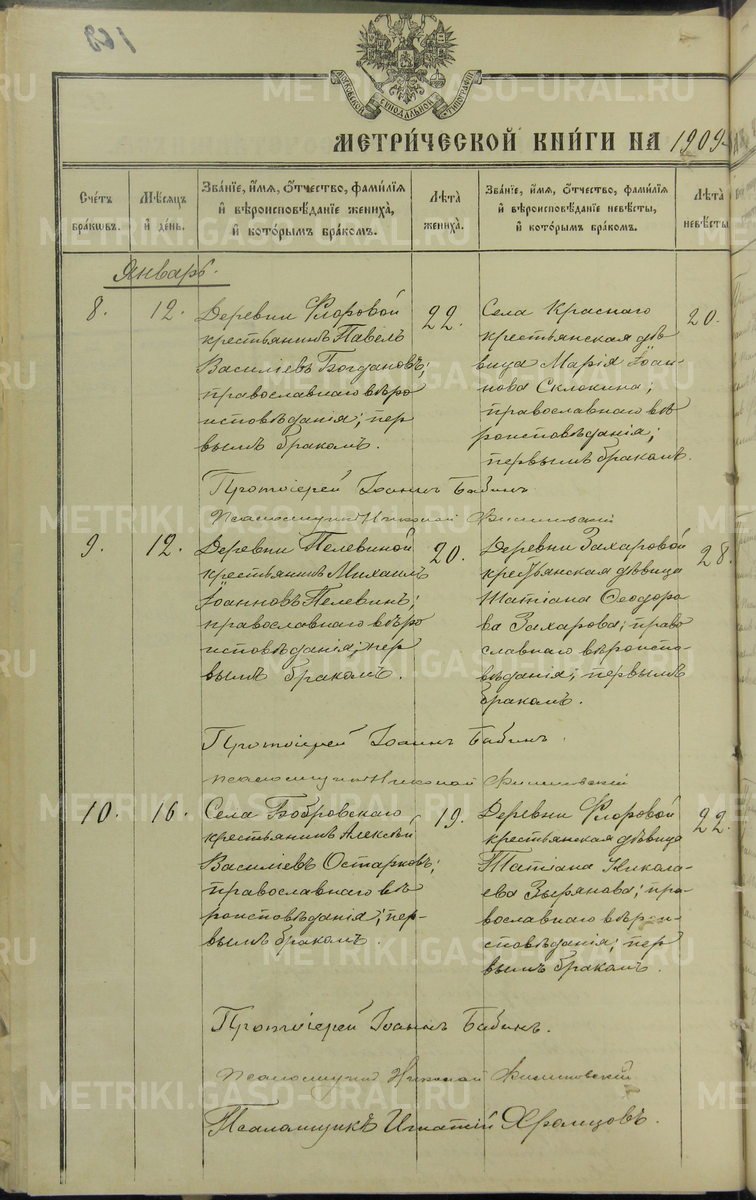 169
МОСКОВСКОЙ СѴНОДАЛЬНОЙ ТИПОГРАФІИ
МЕТРИ́ЧЕСКОЙ КНИ́ГИ НА 1909
Сче́тъ бра́кωвъ.
Мѣ́сяцъ и҆ де́нь.
Зва́нїе, и҆́мя, ѻ҆́тчество, фами́лїя и҆ вѣроисповѣ́данїе жениха̀, и҆ кото́рымъ бра́комъ.
Лѣ́та жениха̀.
Зва́нїе, и҆́мя, ѻ҆́тчество, фами́лїя и҆ вѣроисповѣ́данїе невѣ́сты, и҆ кото́рымъ бра́комъ.
Лѣ́та невѣ́сты
Январь.
8.
12.
Деревни Флоровой
крестьянинъ Павелъ
Василіевъ Богдановъ;
православнаго вѣро
исповѣданія; пер
вымъ бракомъ.
22.
Села Краснаго
крестьянская дѣ
вица Марія Іоан-
нова Склокина;
православнаго вѣ
роисповѣданія;
первымъ бракомъ.
20.
Протоіерей Іоаннъ Бабинъ
Псаломщикъ Николай
9.
12.
Деревни Пелевиной
крестьянинъ Михаилъ
Іоанновъ Пелевинъ;
православнаго вѣро
исповѣданія; пер
вымъ бракомъ.
20.
Деревни Захаровой
крестьянская дѣвица
Татіана Ѳеодоро
ва Захарова; право
славнаго вѣроиспо-
вѣданія; первымъ
бракомъ.
28.
Протоіерей Іоаннъ Бабинъ.
Псаломщикъ Николай
10.
16.
Села Бобровскаго
крестьянинъ Алексѣй
Василіевъ Остарковъ;
православнаго вѣ
роисповѣданія; пер-
вымъ бракомъ.
19.
Деревни Флоровой
крестьянская дѣвица
Татіана Никола
ева Зырянова; пра-
вославнаго вѣрои-
сповѣданія; пер
вымъ бракомъ.
22.
Протоіерей Іоаннъ Бабинъ.
Псаломщикъ Николай
Псаломщикъ Игнатій Храмцовъ.
METRIKI.GASO-URAL.RU